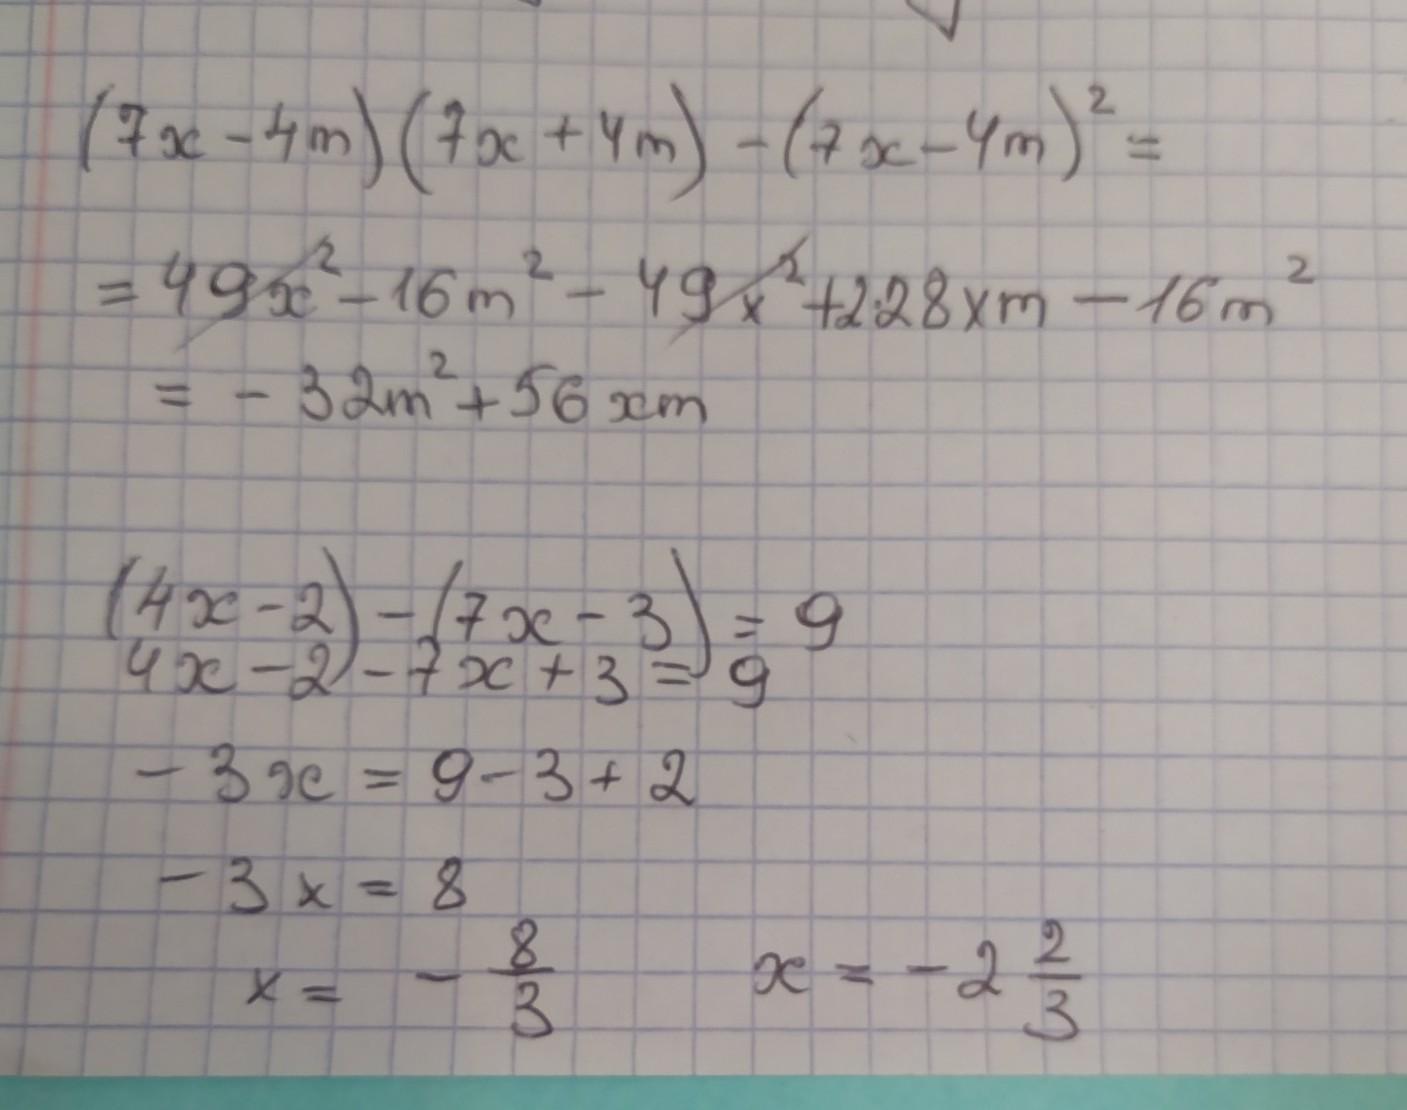 (7x - 4m)(7x + 4m) - (7x - 4m)² =
= 49x² - 16m² - 49x² + 2·28xm - 16m²
= - 32m² + 56xm
(4x - 2) - (7x - 3) = 9
4x - 2 - 7x + 3 = 9
- 3x = 9 - 3 + 2
- 3x = 8
x = - 8/3 x = - 2 2/3